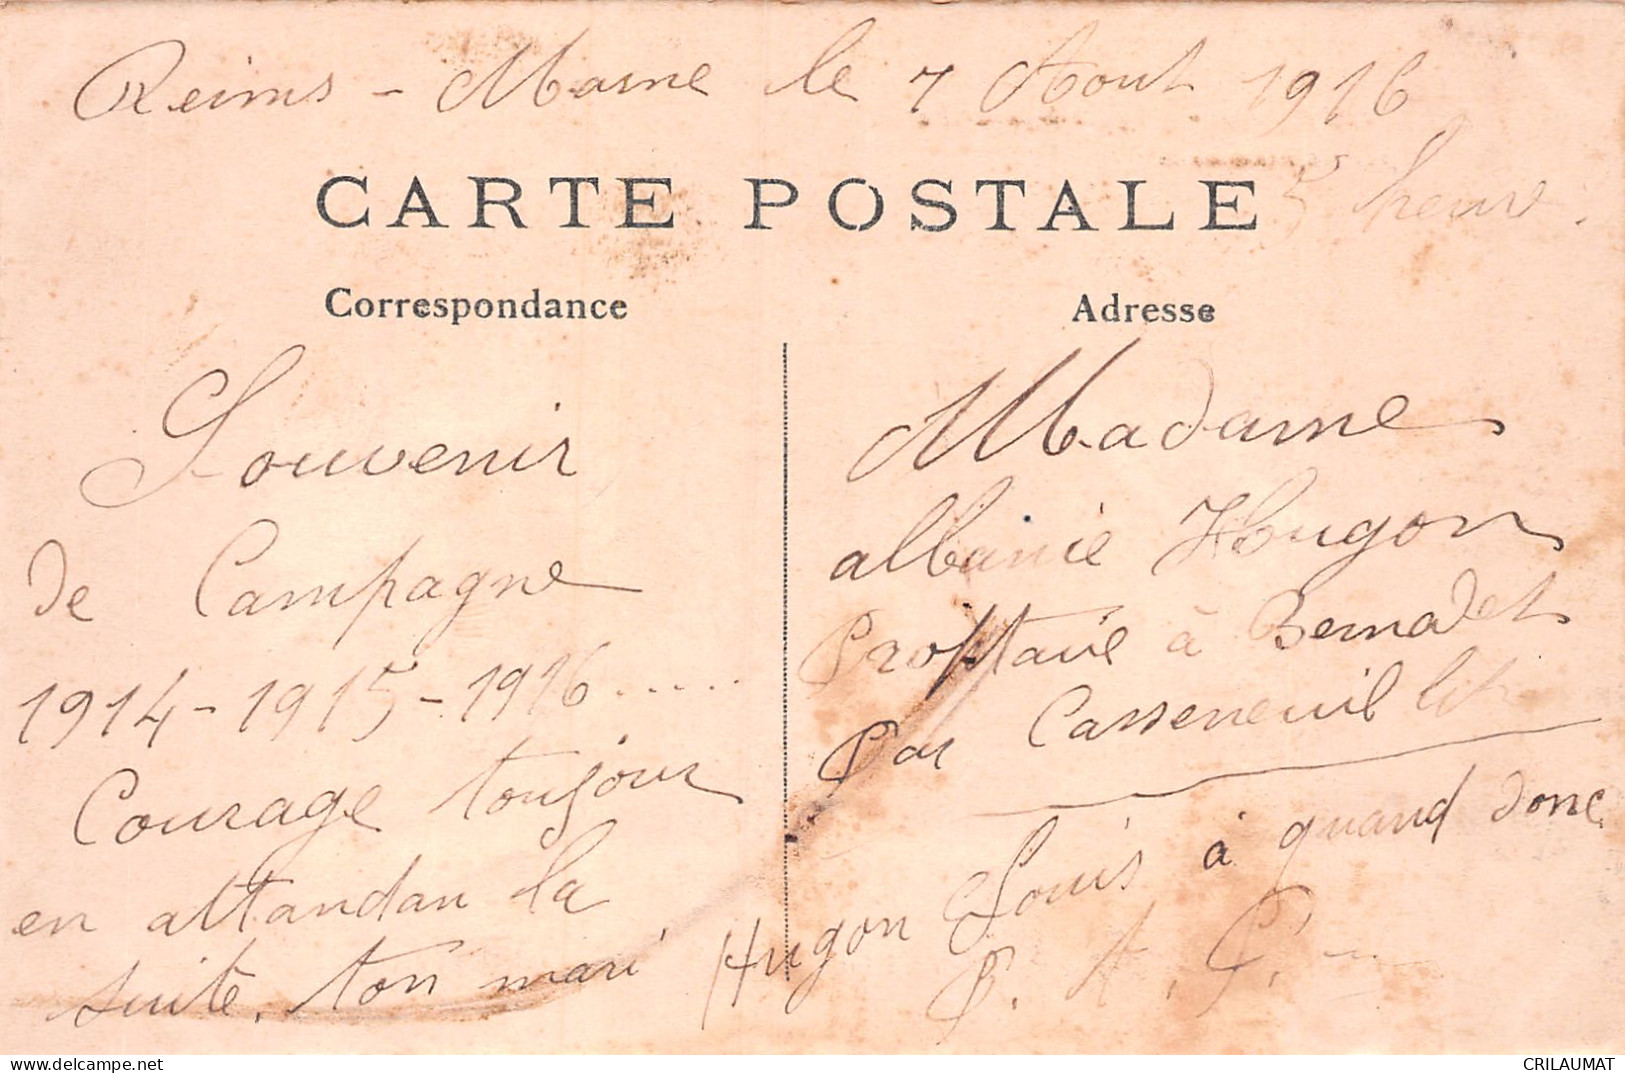 Reims - Marne le 7 Aout 1916
5 heure.
CARTE POSTALE
Correspondance
Adresse
Souvenir
de Campagne
1914-1915-1916.....
Courage toujour
en attandan la
suite. ton mari
Madame
albanie Hugon
Proptaire à Bernadet
Par Casseneuil
Hugon Louis à quand donc
P. A. G.
CRILAUMAT